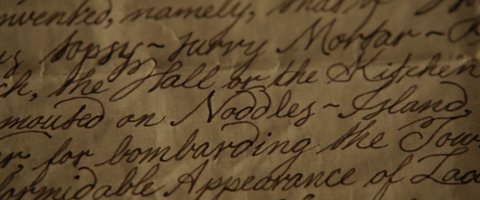 nvented, namely, that of
topsy-turvy Mortar-
ch, the Hall or the Kitchen
mouted on Noddles-Island,
for bombarding the Tow
formidable Appearance of Lad